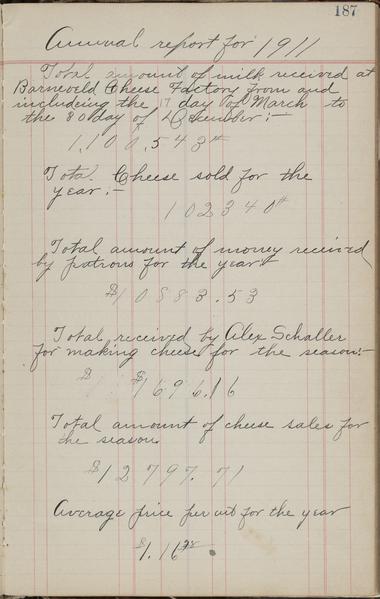 187
Annual report for 1911
Total amount of milk received at
Barneveld Cheese Factory from and
including the 17 day of March to
the 30 day of December:-
1,100,543#
Total Cheese sold for the
year:-
102340#
Total amount of money received
by patrons for the year
$10883.53
Total received by Alex Schaller
for making cheese for the season:-
$ $1696.16
Total amount of cheese sales for
the season
$12797.71
Average price per cwt for the year
$1.16